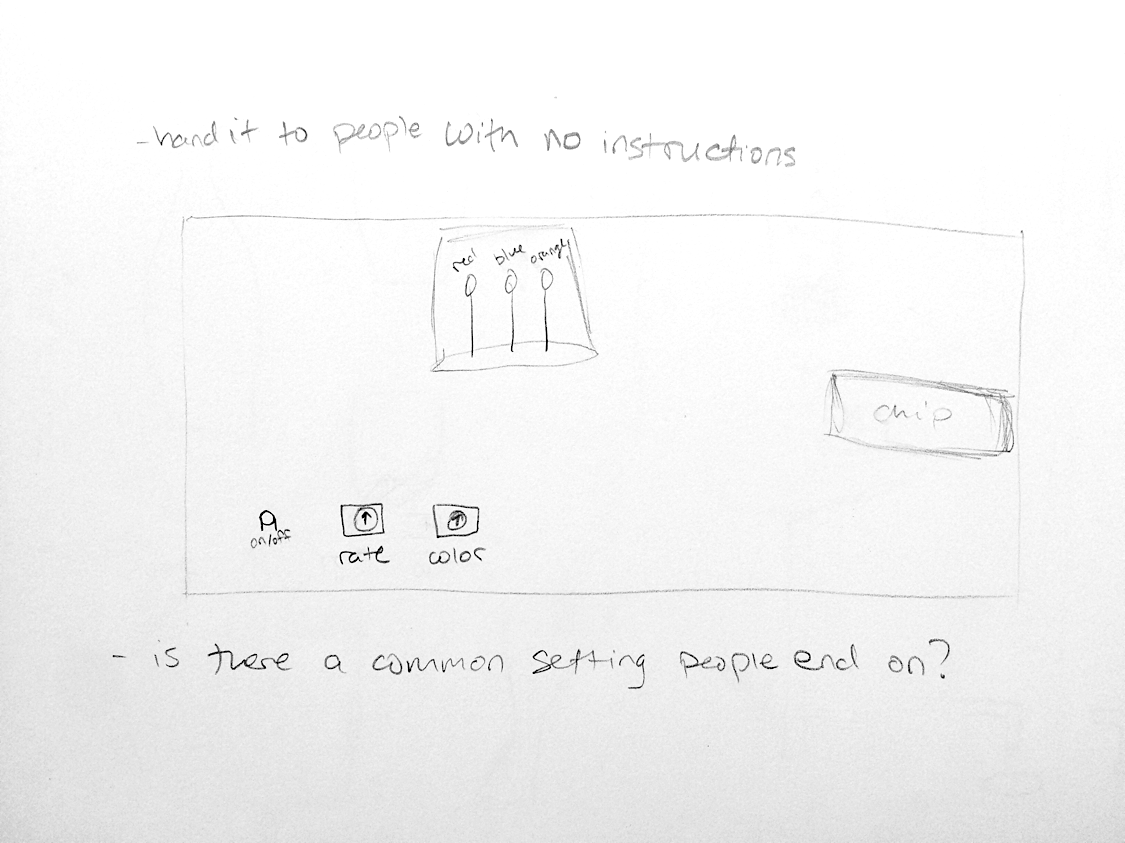 - hand it to people with no instructions
red blue orange
chip
on/off
rate color
- is there a common setting people end on?